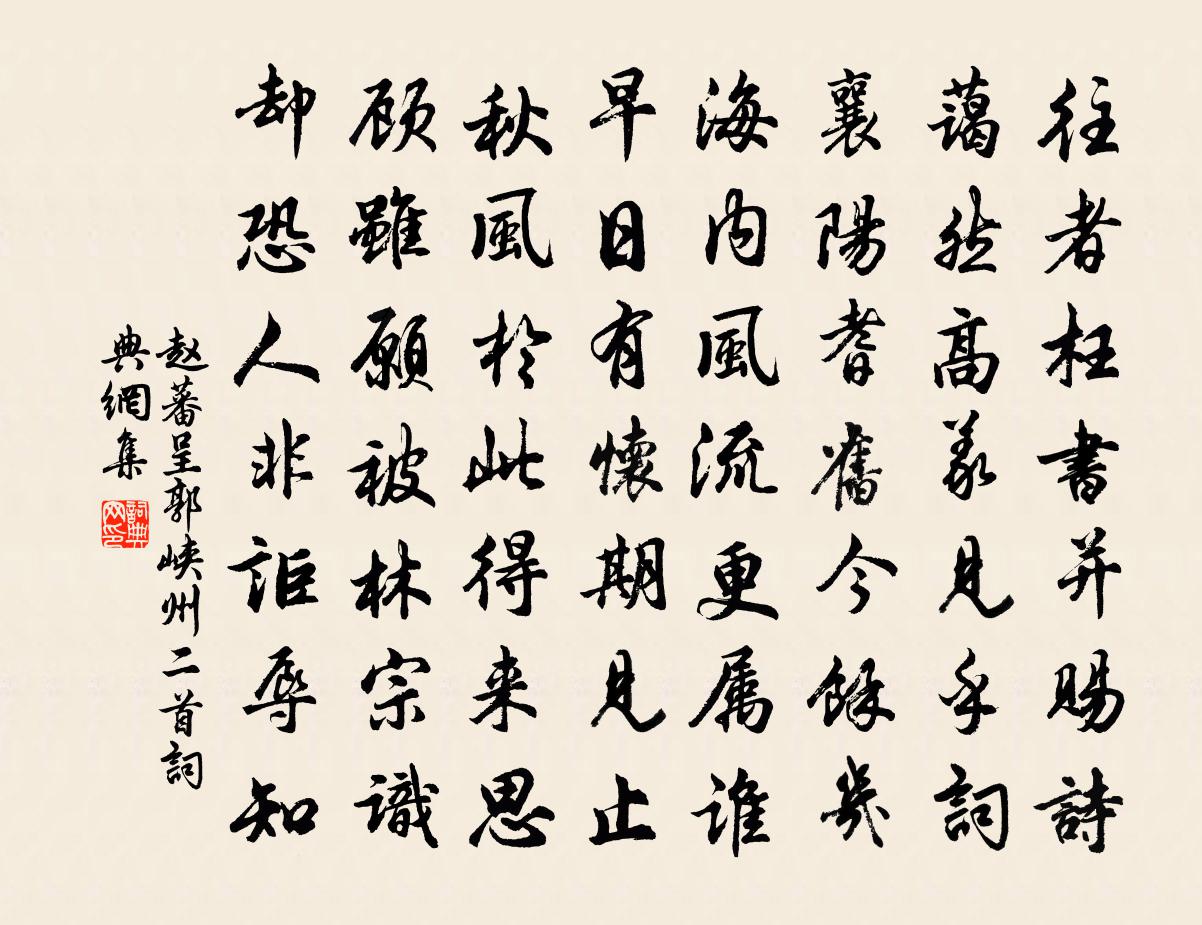 往者枉書并賜詩
藹然高義見乎詞
襄陽耆舊今餘幾
海内風流更属誰
早日有懷期見止
秋風於此得来思
顾雖願被林宗識
却恐人非詎辱知
赵蕃呈郭峡州二首詞
典網集
詞典
网印